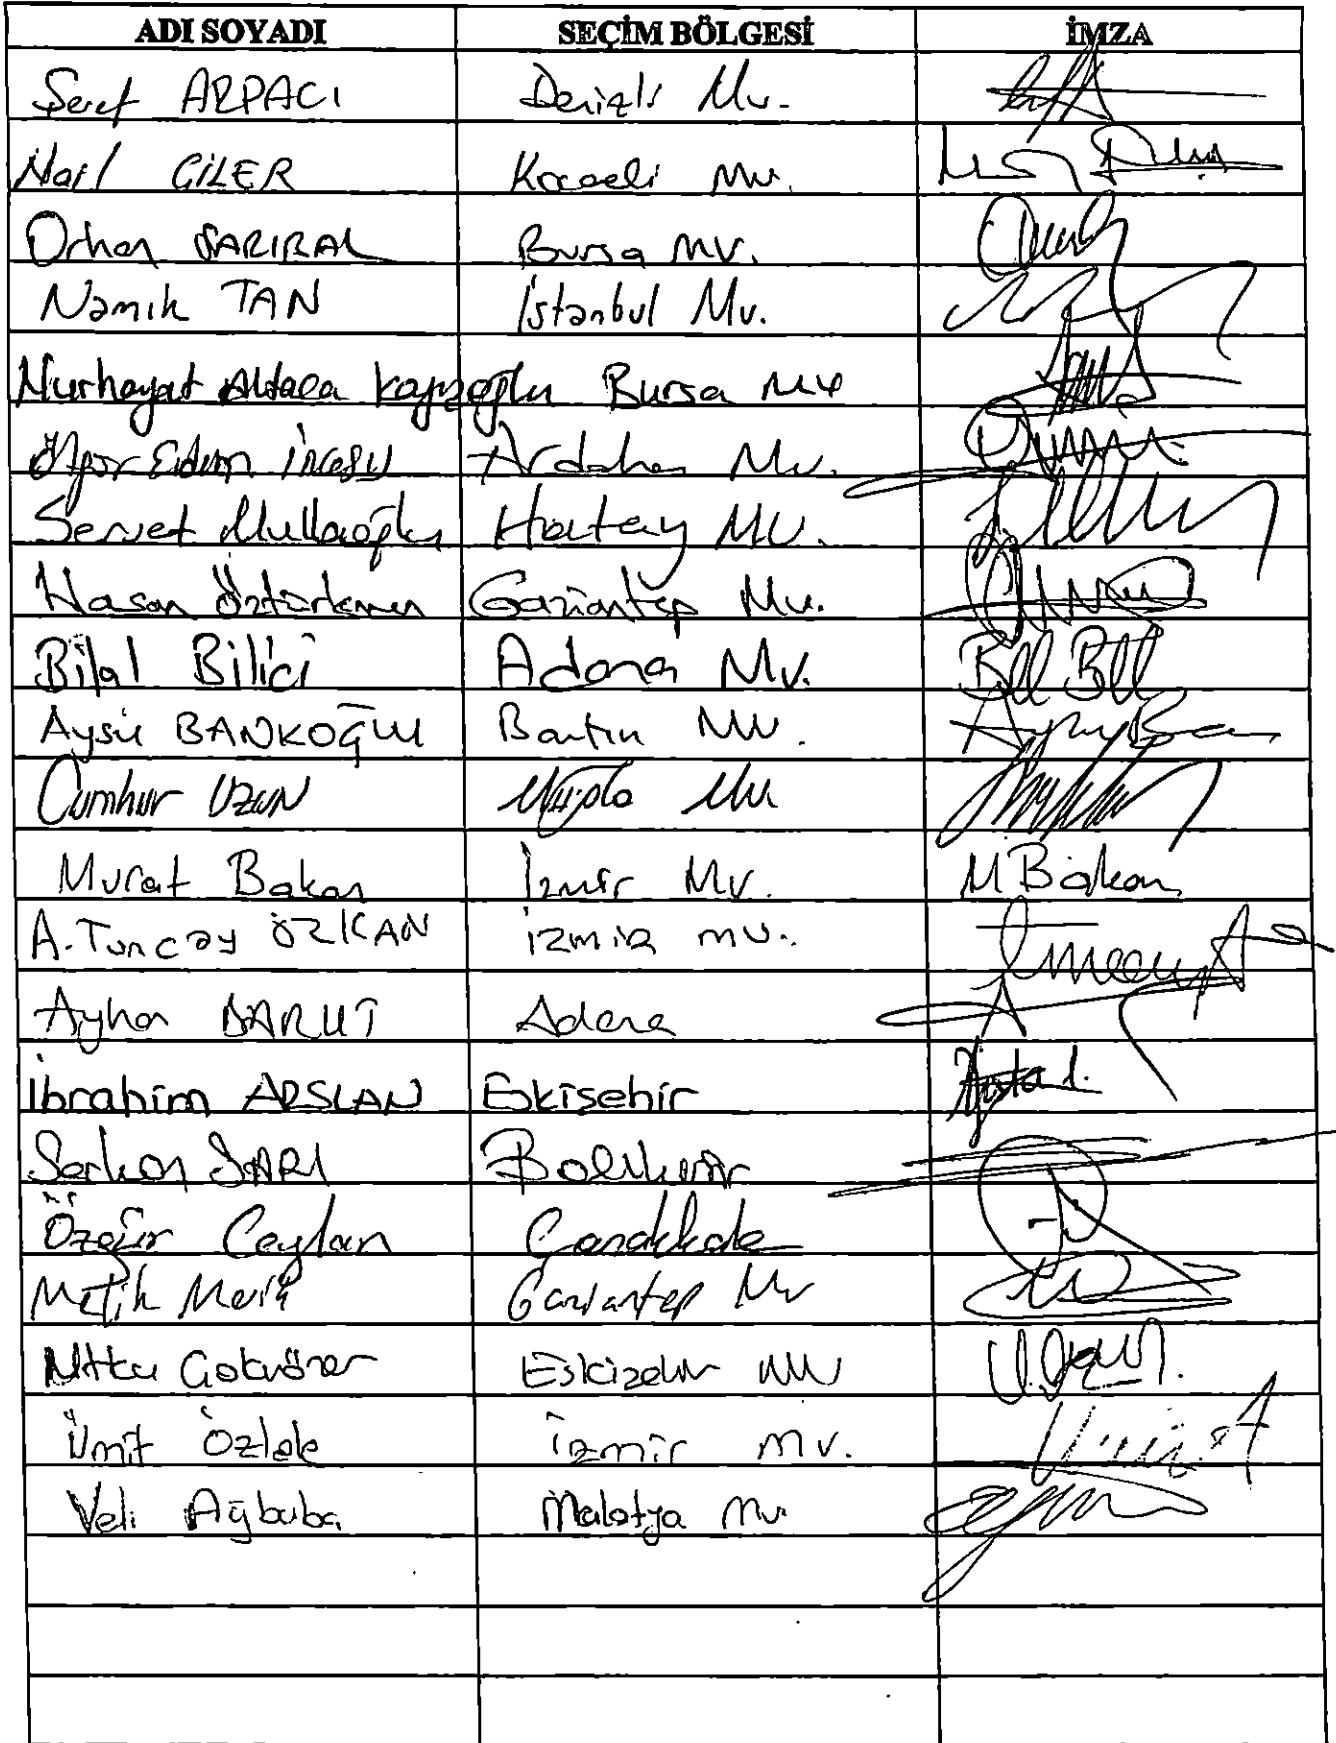 ADI SOYADI SEÇİM BÖLGESİ İMZA
Şeref ARPACI Denizli Mv.
Nail ÇİLER Kocaeli Mv.
Orhan SARIBAL Bursa MV.
Namık TAN İstanbul Mv.
Nurhayat Altaca Kayışoğlu Bursa Mv
Özgür Erdem İncesu Ardahan Mv.
Servet Mullaoğlu Hatay MV.
Hasan Öztürkmen Gaziantep Mv.
Bilal Bilici Adana Mv.
Aysu BANKOĞLU Bartın MV.
Cumhur UZUN Muğla Mv
Murat Bakan İzmir Mv. M Bakan
A. Tuncay ÖZKAN İZMİR MV.
Ayhan BARUT Adana
İbrahim ARSLAN Eskişehir
Serkan SARI Balıkesir
Özgür Ceylan Çanakkale
Melih Meriç Gaziantep Mv
Utku Çakırözer Eskişehir MV
Ümit Özlale İzmir mv.
Veli Ağbaba Malatya Mv.